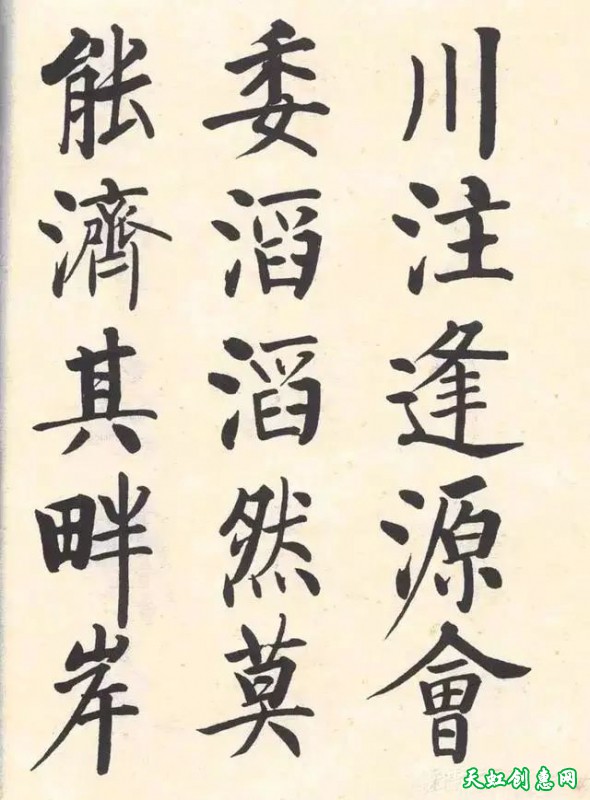 川注逢源會
委滔滔然莫
能濟其畔岸
天虹创惠网